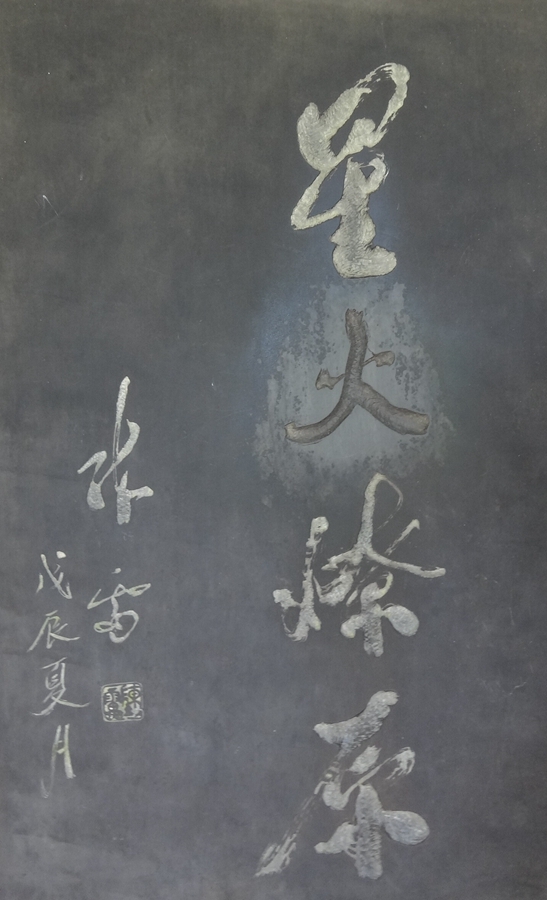 星火燎原
陈雷
戊辰夏月